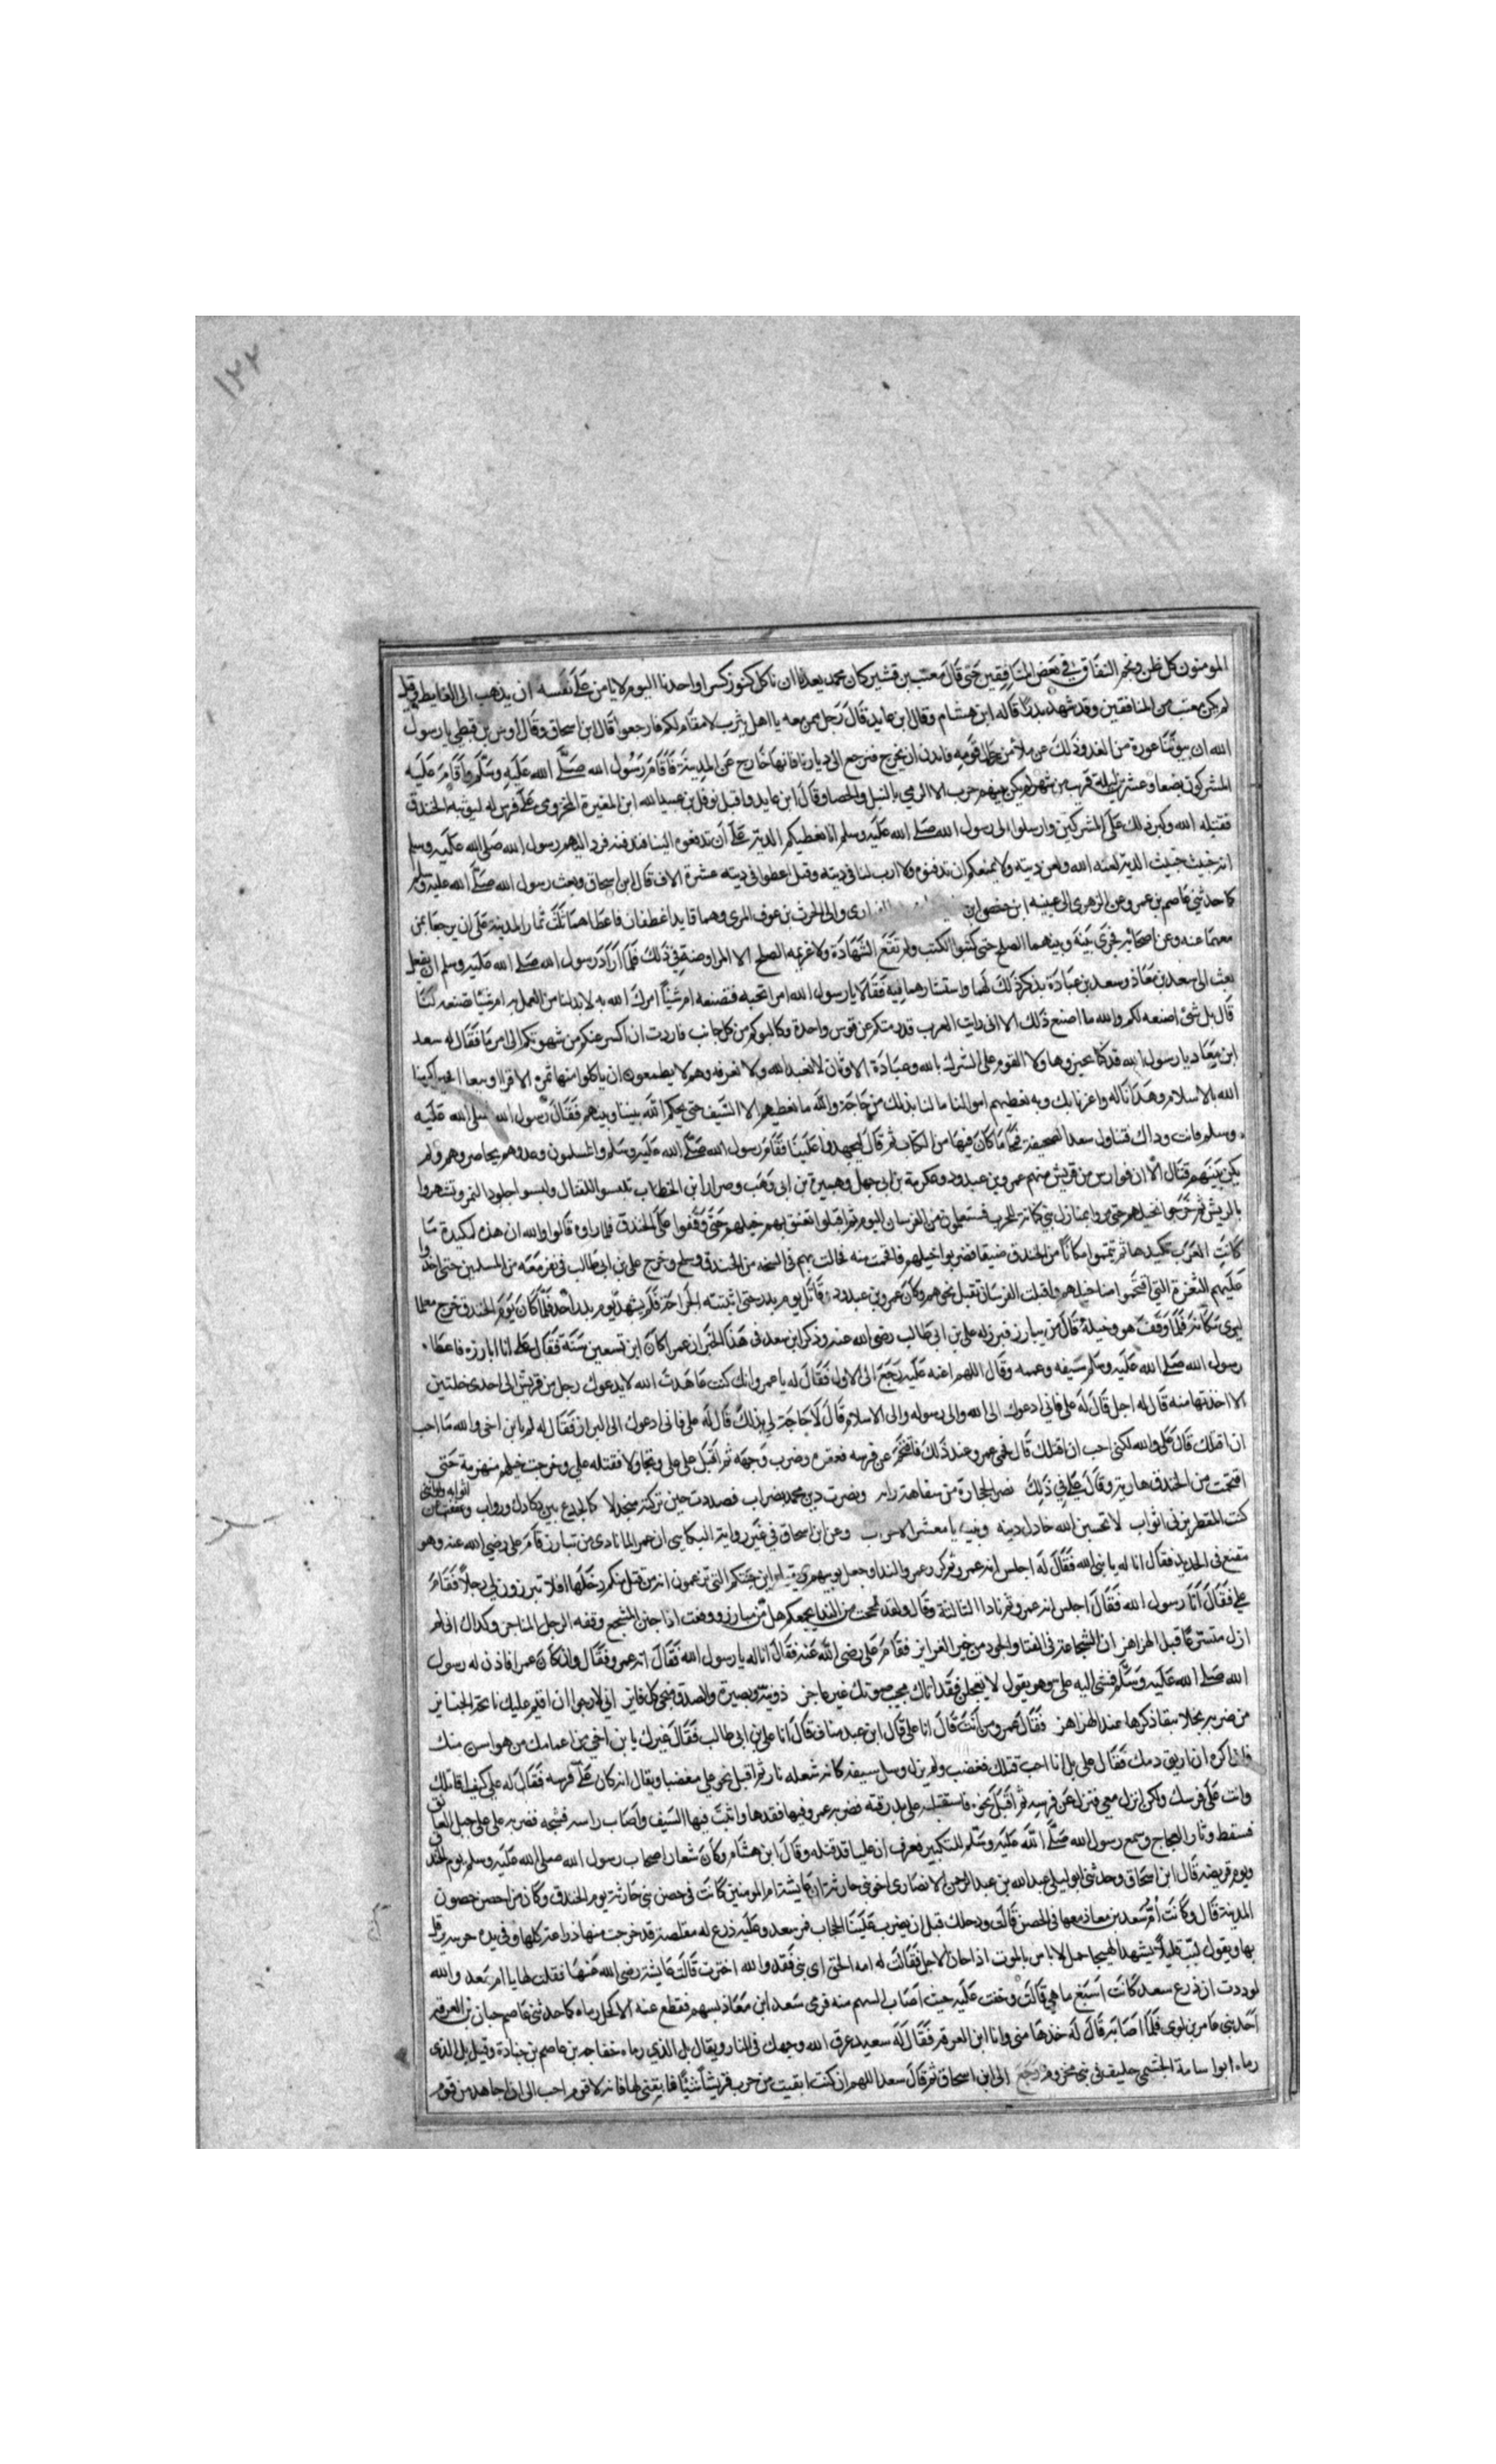 ١٢٢
المومنون كل ظن ونجم النفاق في بعض المنافقين حتى قال معتب بن قشير كان محمد يعدنا ان ناكل كنوز كسرا واحدنا اليوم لا يامن على نفسه ان يذهب الى الغايط وقيل
لم يكن معتب من المنافقين وقد شهد بدرا قاله ابن هشام وقال ابن عايد قال رجل ممن معه يا اهل يثرب لا مقام لكم فارجعوا قال ابن اسحاق وقال اوس بن قيظي يا رسول
الله ان بيوتنا عورة من العدو وذلك عن ملأ من رجال قومه فاىدن ان نخرج فنرجع الى ديارنا فانها خارج عن المدينة فاقام رسول الله صلى الله عليه وسلم واقام عليه
المشركون بضعا وعشرين ليلة قريب من شهر لم يكن بينهم حرب الا الرمي بالنبل والحصا وقال ابن عايد واقبل نوفل بن عبد الله ابن المغيرة المخزومي على فرس له ليوثبه الخندق
فقتله الله وكبر ذلك على المشركين وارسلوا الى رسول الله صلى الله عليه وسلم انا نعطيكم الدية على أن تدفعوه الينا فندفنه فرد اليهم رسول الله صلى الله عليه وسلم
انه خبيث خبيث الدية لعنه الله ولعن ديته ولا نمنعكم ان تدفنوه ولا ارب لنا في ديته وقيل اعطوا في ديته عشرة الاف قال ابن اسحاق وبعث رسول الله صلى الله عليه وسلم
كما حدثني عاصم بن عمر وعن الزهرى الى عيينه ابن حصن ابن والى الحرث بن عوف المرى وهما قايدا غطفان فاعطاهما ثلث ثمار المدينة على ان يرجعا بمن
معهما عنه وعن اصحابه فجرى بينه وبينهما الصلح حتى كتبوا الكتب ولم تقع الشهادة ولا عزيمة الصلح الا المراوضة في ذلك فلما أراد رسول الله صلى الله عليه وسلم ان يفعل
بعث الى سعد بن معاذ وسعد بن عبادة بذكر ذلك لهما واستشارهما فيه فقالا يا رسول الله امرا تحبه فنصنعه ام شيئا امرك الله به لا بد لنا من العمل به ام شيئا تصنعه لنا
قال بل شئ اصنعه لكم والله ما اصنع ذلك الا انى رايت العرب قد رمتكم عن قوس واحدة وكالبوكم من كل جانب فاردت ان اكسر عنكم من شهوتكم الى امر ما فقال له سعد
ابن معاذ يا رسول الله قد كنا نحن وهاولا القوم على الشرك بالله وعبادة الاوثان لا نعبد الله ولا نعرفه وهم لا يطمعون ان ياكلوا منها تمره الا قرا او بيعا احين اكرمنا
الله بالاسلام وهدانا له واعزنا بك وبه نعطيهم اموالنا ما لنا بذلك من حاجة والله ما نعطيهم الا السيف حتى يحكم الله بيننا وبينهم فقال رسول الله صلى الله عليه
وسلم فانت وذاك فتناول سعد الصحيفة فمحا ما كان فيها من الكتاب ثم قال ليجهدوا علينا فقام رسول الله صلى الله عليه وسلم والمسلمون وعدوهم يحاصروهم ولم
يكن بينهم قتال الا ان فوارس من قريش منهم عمرو بن عبدود وعكرمة بن ابى جهل وهبيرة بن ابى وهب وضرار ابن الخطاب تلبسوا للقتال ولبسوا جلود النمر وتشهروا
بالريش ثم خرجوا انخيلهم حتى مروا بمنازل بني كنانة للحرب فستعلمون من الفرسان اليوم ثم اقبلوا تعنق بهم خيلهم حتى وقفوا على الخندق فلما راوه قالوا والله ان هذه لمكيدة ما
كانت العرب تكيدها ثم تيمموا مكانا من الخندق ضيقا فضربوا خيلهم فاقتحمت منه فجالت بهم في السبخه من الخندق وسلع وخرج على بن ابى طالب في نفر معه من المسلمين حتى اخذوا
عليهم الثغرة التي اقتحموا منها خيلهم واقبلت الفرسان تقبل نحوهم وكان عمرو بن عبدود قاتل يوم بدر حتى اثبتته الجراحة فلم يشهد يوم احد فلما كان يوم الخندق خرج معلما
ليرى مكانه فلما وقف هو وخيله قال من يبارز فبرز له على بن ابى طالب رضى الله عنه وذكر ابن سعد فى هذا الخبر ان عمرا كان ابن تسعين سنة فقال على انا ابارزه فاعطاه
رسول الله صلى الله عليه وسلم سيفه وعممه وقال اللهم اعنه عليه رجع الى الاول فقال له يا عمرو انك كنت عاهدت الله لا يدعوك رجل من قريش الى احدى خلتين
الا اخذتها منه قال له اجل قال له على فانى ادعوك الى الله والى رسوله والى الاسلام قال لا حاجة لي بذلك قال له على فانى ادعوك الى البراز فقال له لم يا بن اخى والله ما احب
ان اقتلك قال على والله لكنى احب ان اقتلك قال فحمى عمرو عند ذلك فاقتحم عن فرسه فعقره وضرب وجهه ثم اقبل على على وتجاولا فقتله علي وخرجت خيلهم منهزمة حتى
اقتحمت من الخندق هاربة وقال علي في ذلك نصر الحجارة من سفاهة رايه ونصرت دين محمد بضراب فصددت حين تركته متجدلا كالجذع بين دكادك ورواب وعففت عن اثوابه ولو انني
كنت المقطر بزنى اثواب لا تحسبن الله خاذل دينه ونبيه يا معشر الاحزاب وعن ابن اسحاق في غير رواية البكايي ان عمرا لما نادى من يبارز قام على رضي الله عنه وهو
مقنع فى الحديد فقال انا له يا نبى الله فقال له اجلس انه عمرو ثم كرر عمرو الندا وجعل يوبخهم ويقول اين جنتكم التى تزعمون انه من قتل منكم دخلها افلا تبرزون لي رجلا فقام
علي فقال أنا رسول الله فقال اجلس انه عمرو ثم نادا الثالثة وقال ولقد بححت من الندا بجمعكم هل من مبارز ووقفت اذا جبن المشجع وقفه الرجل المناجز وكذاك انى لم
ازل متسرعا قبل الهزاهز ان الشجاعة فى الفتا والجود من خير الغرايز فقام على رضى الله عنه فقال انا له يا رسول الله فقال انه عمرو فقال وان كان عمرا فاذن له رسول
الله صلى الله عليه وسلم فمشى اليه على وهو يقول لا تعجلن فقد اتاك مجيب صوتك غير عاجز ذو نية وبصيرة والصدق منجى كل فايز اني لارجوا ان اقيم عليك نائحة الجنايز
من ضربة نجلا يبقا ذكرها عند الهزاهز فقال عمرو من أنت قال انا على قال ابن عبد مناف قال انا على بن ابى طالب فقال غيرك يا بن اخي من اعمامك من هو اسن منك
فانى اكره ان اريق دمك فقال على بل انا احب قتلك فغضب ولم يزل وسل سيفه كانه شعله نار ثم اقبل نحو علي مغضبا ويقال انه كان على فرسه فقال له على كيف اقاتلك
وانت على فرسك ولكن انزل معى فنزل عن فرسه ثم اقبل نحوه فاستقبله على بدرقته فضربه عمرو فيها فقدها واثبت فيها السيف واصاب راسه فشجه فضربه على على حبل العاتق
فسقط وثار العجاج وسمع رسول الله صلى الله عليه وسلم التكبير فعرف ان عليا قد قتله وقال ابن هشام وكان شعار اصحاب رسول الله صلى الله عليه وسلم يوم الخندق
ويوم قريضة قال ابن اسحاق وحدثنى ابو ليلى عبد الله بن عبد الرحمن الانصارى اخو بنى حارثة ان عايشة ام المومنين كانت فى حصن بني حارثة يوم الخندق وكان من احصن حصون
المدينة قال وكانت أم سعد بن معاذ معها في الحصن قالت وذلك قبل ان يضرب علينا الحجاب فمر سعد وعليه درع له مقلصة قد خرجت منها ذراعه كلها وفي يده حربه يرقل
بها ويقول لبث قليلا يشهد الهيجا حمل لا باس بالموت اذا حان الاجل فقالت له امه الحق اى بنى فقد والله اخرت قالت عايشة رضى الله عنها فقلت لها يا ام سعد والله
لوددت ان درع سعد كانت أسبغ ما هي قالت وخفت عليه حيث اصاب السهم منه فرمى سعد ابن معاذ بسهم فقطع عنه الاكحل رماه كما حدثنى عاصم حبان بن العرقة
احد بنى عامر بن لوى فلما اصابه قال له خذها منى وانا ابن العرقة فقال له سعيد عرق الله وجهك فى النار ويقال بل الذي رماه خفاجه بن عاصم بن جبادة وقيل بل الذى
رماه ابوا سامة الجشمي حليف فى بنى مخزوم رجع الى ابن اسحاق ثم قال سعد اللهم ان كنت ابقيت من حرب قريشا شيئا فابقني لها فانه لا قوم احب الى ان اجاهد من قوم